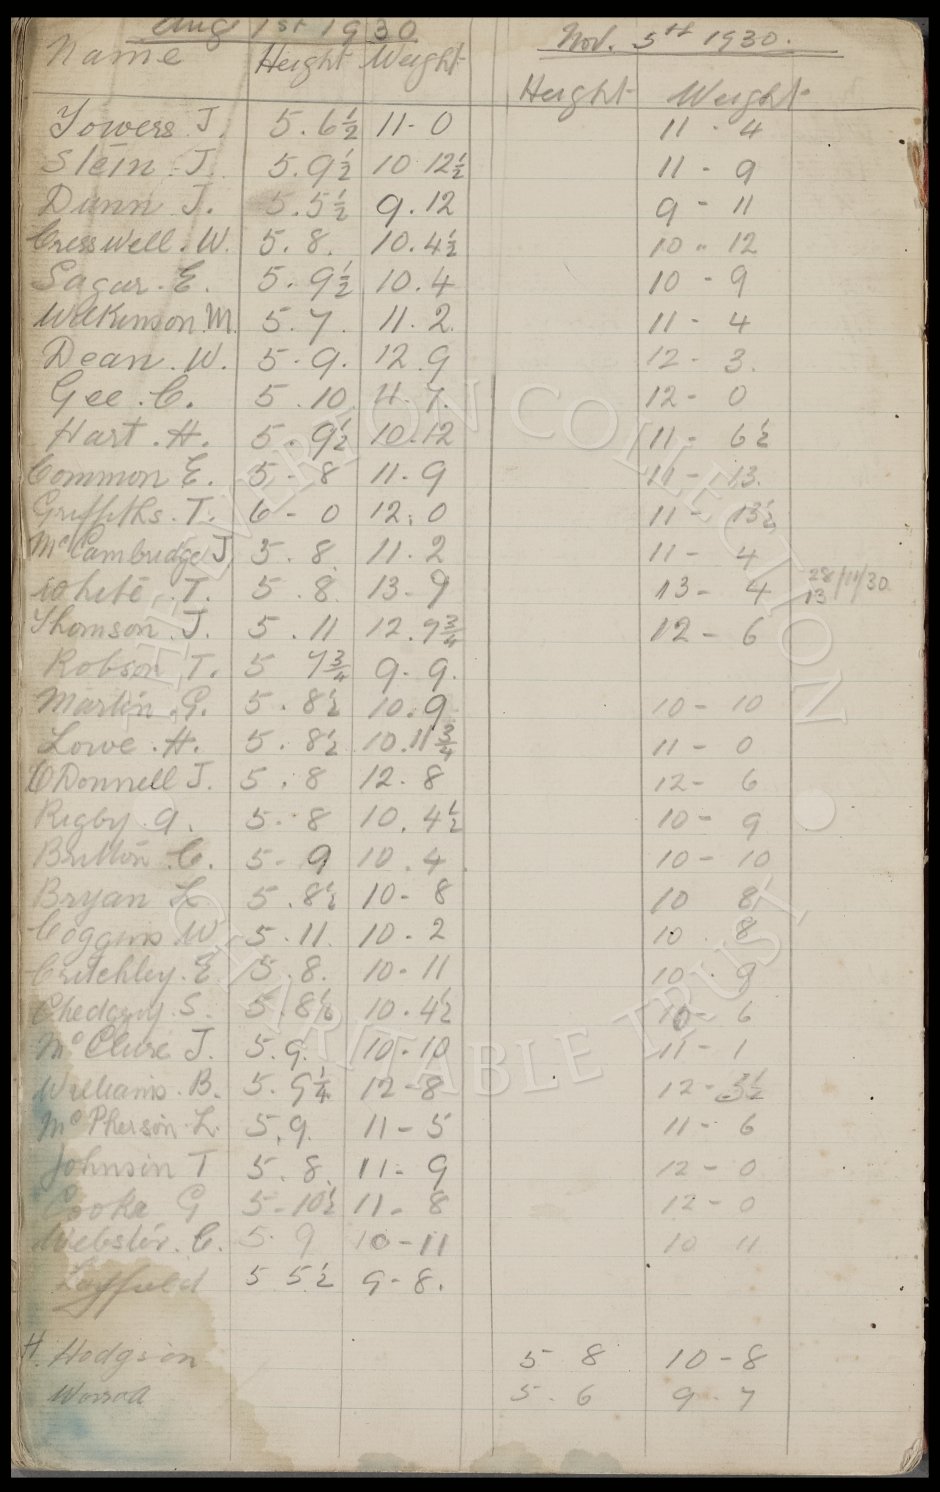 Aug 1st 1930 Nov. 5th 1930.
Name Height Weight Height Weight
Towers J. 5.6½ 11-0 11-4
Stein. J. 5.9½ 10 12½ 11-9
Dunn J. 5.5½ 9.12 9-11
Cresswell. W. 5.8. 10.4½ 10-12
Sagar. E. 5.9½ 10.4 10-9
Wilkinson M. 5.7. 11.2. 11-4
Dean. W. 5-9. 12.9 12-3.
Gee. C. 5.10 11.7. 12-0
Hart. H. 5.9½ 10.12 11-6½
Common E. 5-8 11-9 11-13.
Griffiths. T. 6-0 12.0 11-13½
McCambridge J 5.8. 11.2 11-4
White. T. 5.8. 13-9 13-4 28/11/30 13
Thomson. J. 5.11 12.9¾ 12-6
Robson T. 5 7¾ 9-9.
Martin. G. 5.8½ 10.9 10-10
Lowe. H. 5.8½ 10.11¾ 11-0
O'Donnell J. 5.8 12-8 12-6
Rigby. A. 5-8 10.4½ 10-9
Britton C. 5-9 10.4 10-10
Bryan L 5.8½ 10-8 10 8
Coggins W 5.11. 10-2 10.8
Critchley. E. 5.8. 10-11 10.9
Chedgzoy. S. 5.8½ 10.4½ 10-6
McClure J. 5.9. 10-10 11-1
Williams. B. 5.9¼ 12-8 12-3½
McPherson. L. 5.9. 11-5 11-6
Johnson T 5.8. 11-9 12-0
Cooke G 5-10½ 11-8 12-0
Webster. C. 5.9 10-11 10 11
Layfield 5 5½ 9-8.
H. Hodgson 5 8 10-8
Worrod 5-6 9-7
THE EVERTON COLLECTION CHARITABLE TRUST